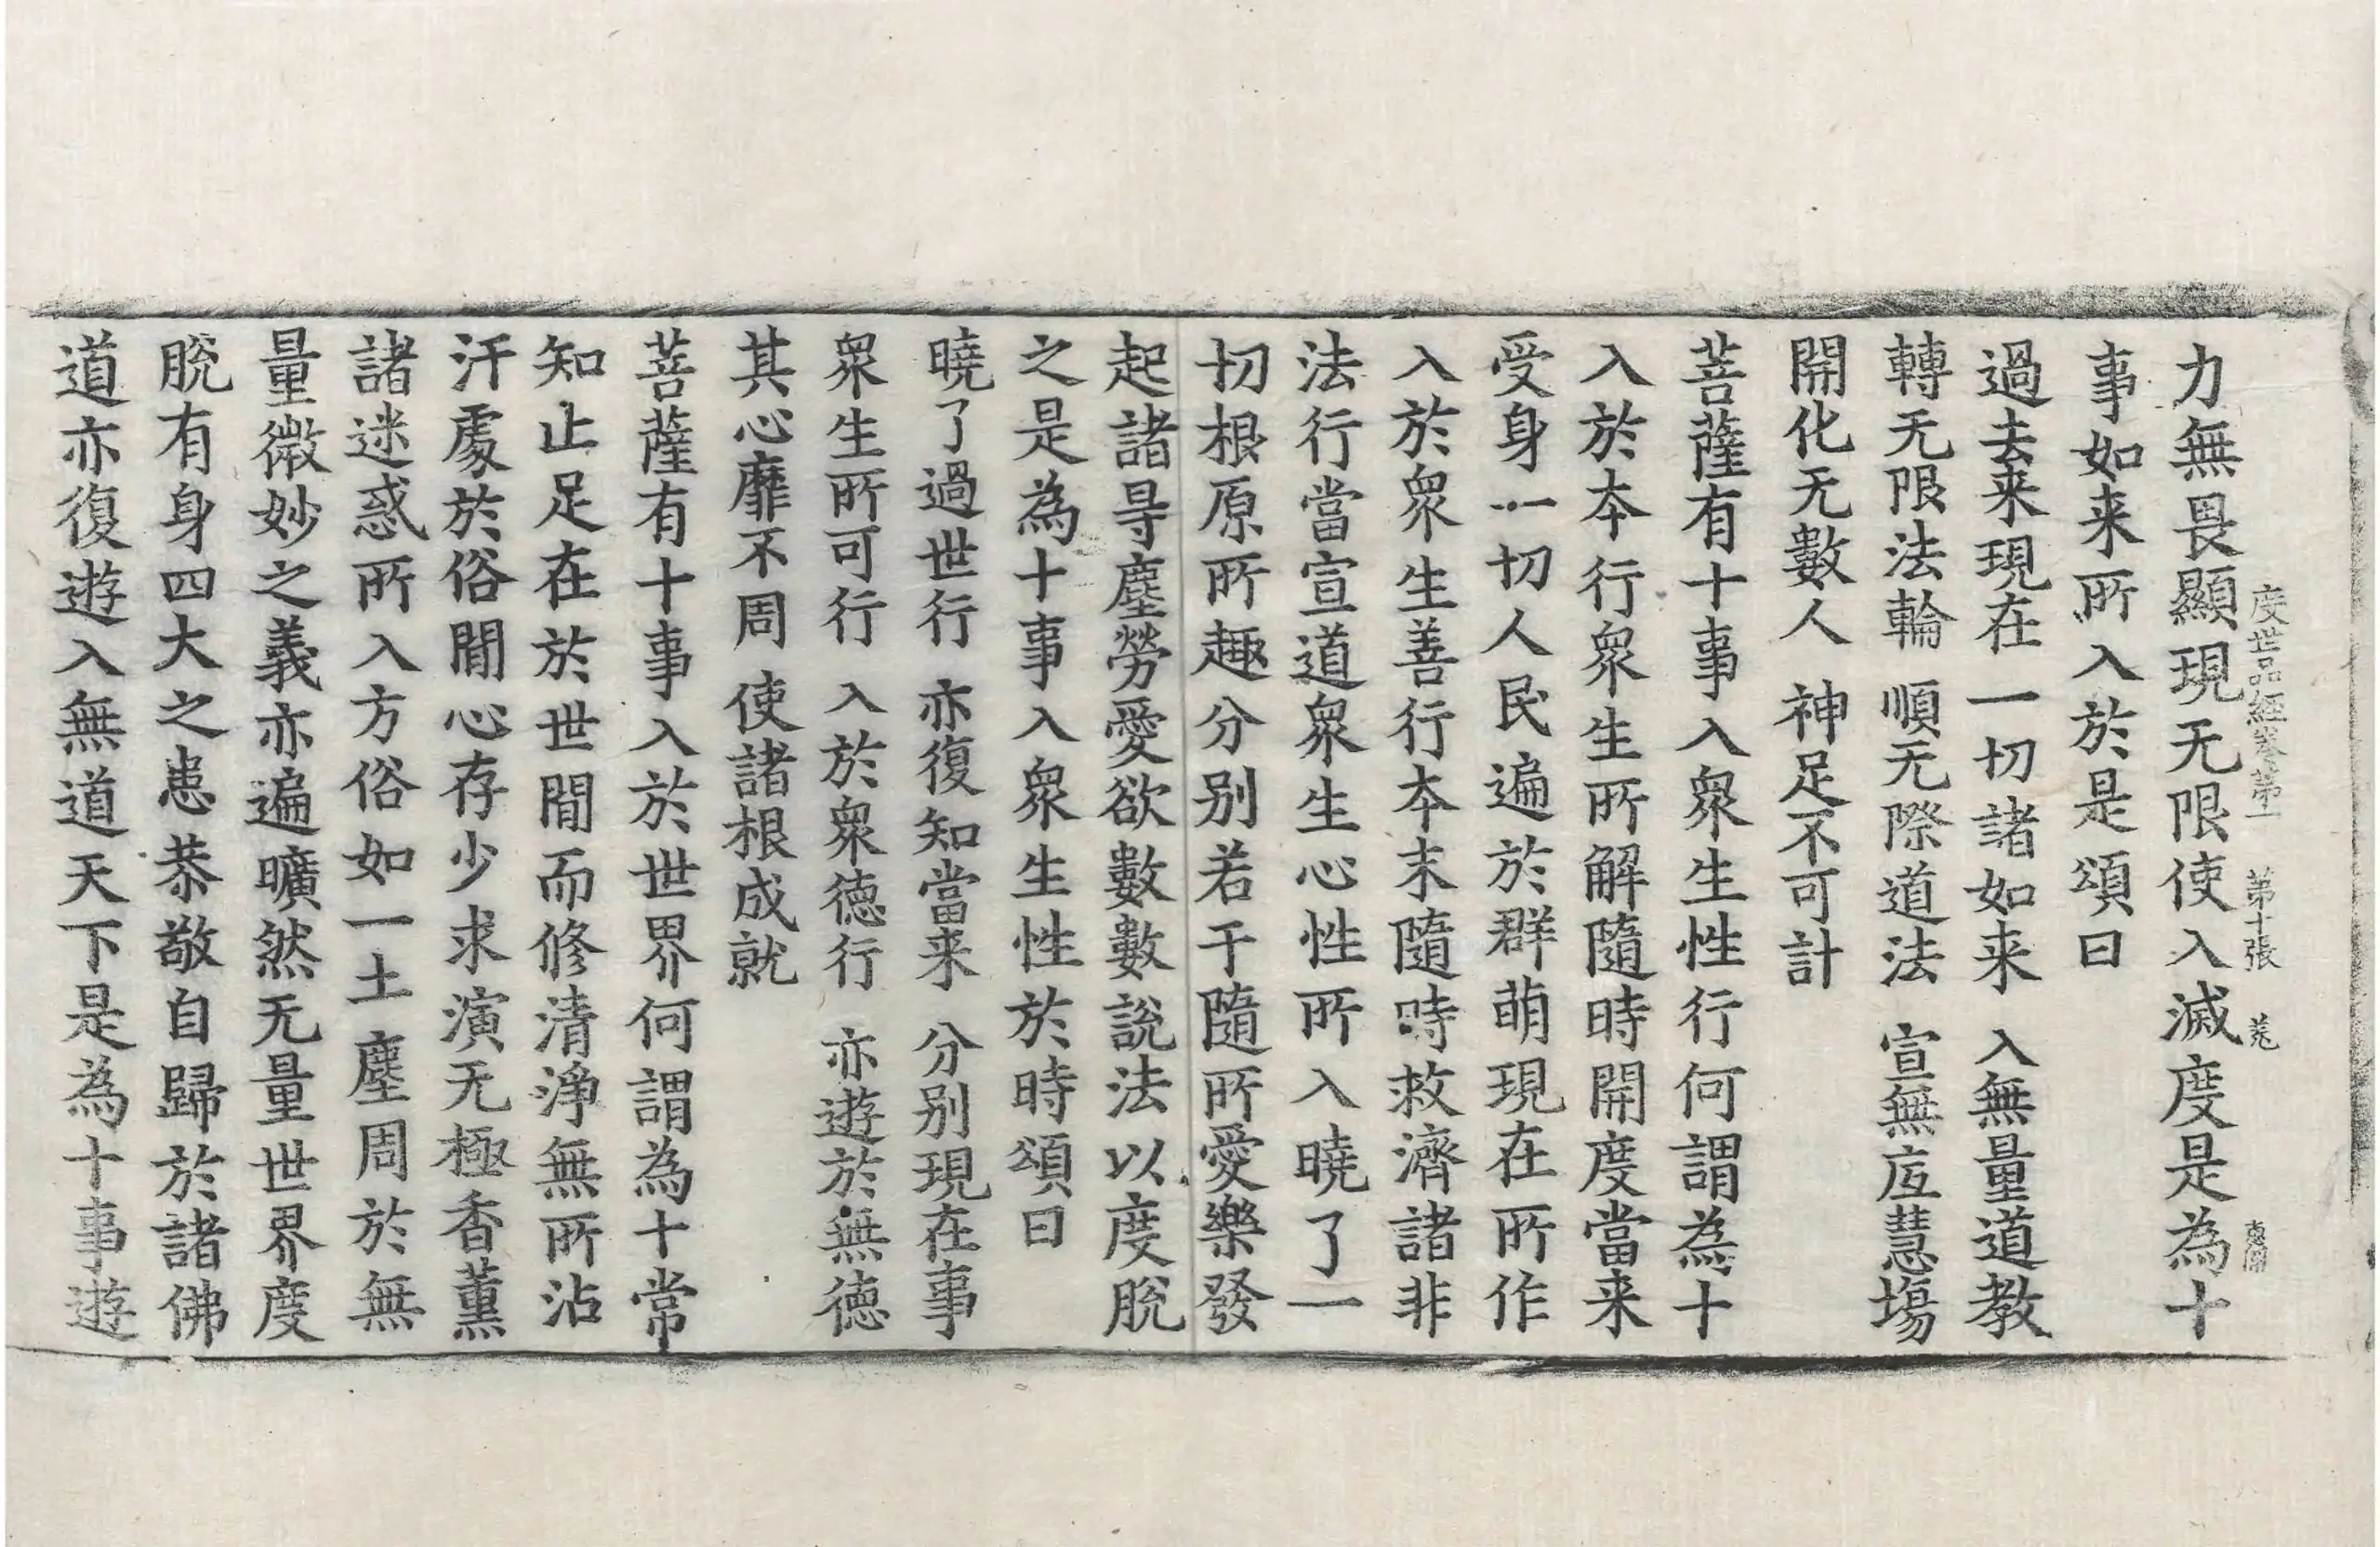 度世品經卷第一 第十張 菟
力無畏顯現无限使入滅度是為十
事如来所入於是頌曰
過去来現在 一切諸如来 入無量道教
轉无限法輪 順无際道法 宣無底慧場
開化无數人 神足不可計
菩薩有十事入衆生性行何謂為十
入於本行衆生所解隨時開度當来
受身一切人民遍於群萌現在所作
入於衆生善行本末隨時救濟諸非
法行當宣道衆生心性所入曉了一
切根原所趣分别若干隨所愛樂發
起諸㝵塵勞愛欲數數說法以度脫
之是為十事入衆生性於時頌曰
曉了過世行 亦復知當来 分别現在事
衆生所可行 入於衆德行 亦遊於無德
其心靡不周 使諸根成就
菩薩有十事入於世界何謂為十常
知止足在於世間而修清淨無所沾
汗處於俗間心存少求演无極香薰
諸迷惑所入方俗如一土塵周於無
量微妙之義亦遍曠然无量世界度
脫有身四大之患恭敬自歸於諸佛
道亦復遊入無道天下是為十事遊